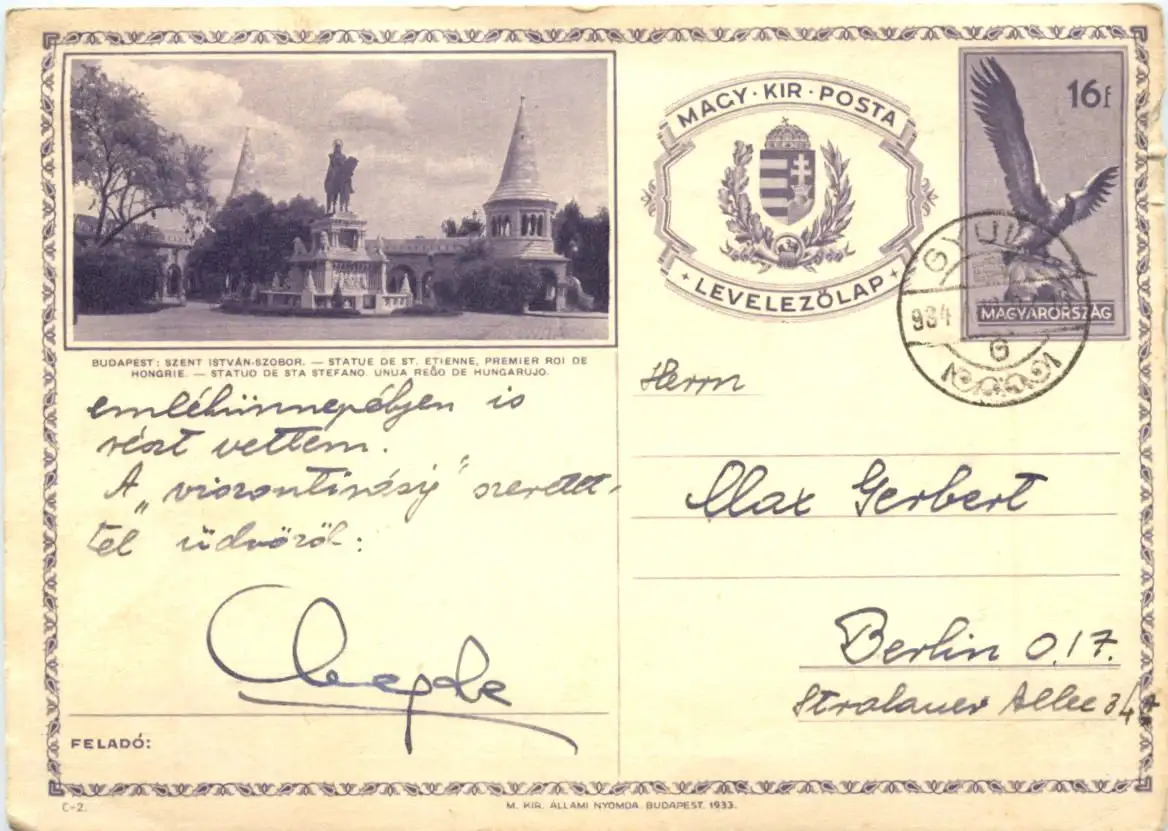 MAGY · KIR · POSTA
LEVELEZŐLAP
16f
MAGYARORSZÁG
GYULA
934
G
BUDAPEST: SZENT ISTVÁN-SZOBOR. — STATUE DE ST. ETIENNE, PREMIER ROI DE
HONGRIE. — STATUO DE STA STEFANO. UNUA REĜO DE HUNGARUJO.
emlékünnepélyen is
részt vettem.
A „viszontlátásig" szeretet-
tel üdvözöl:
Herrn
Max Gerbert
Berlin O.17.
Stralauer Allee 34
FELADÓ:
C-2.
M. KIR. ÁLLAMI NYOMDA. BUDAPEST. 1933.